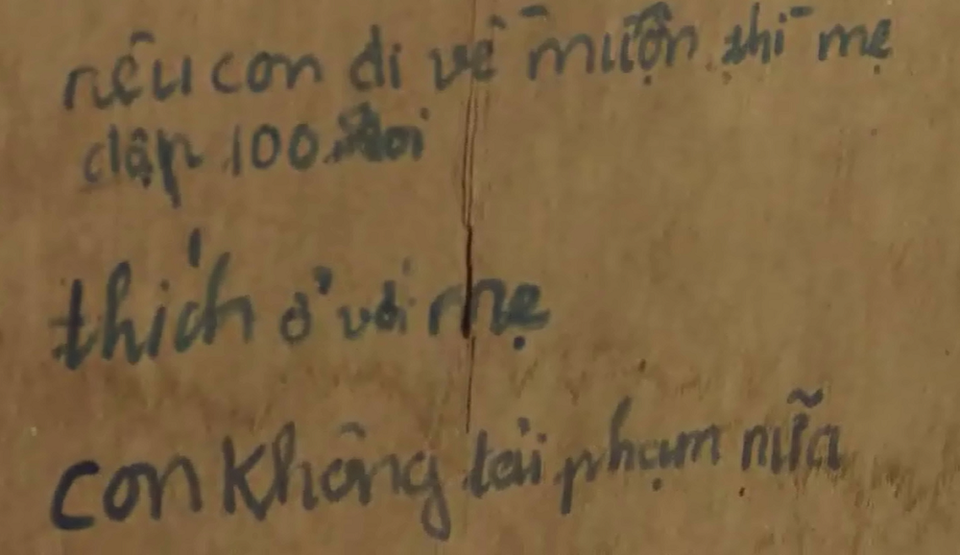 nếu con đi về muộn thì mẹ
đập 100 roi
thích ở với mẹ
con không tái phạm nữa